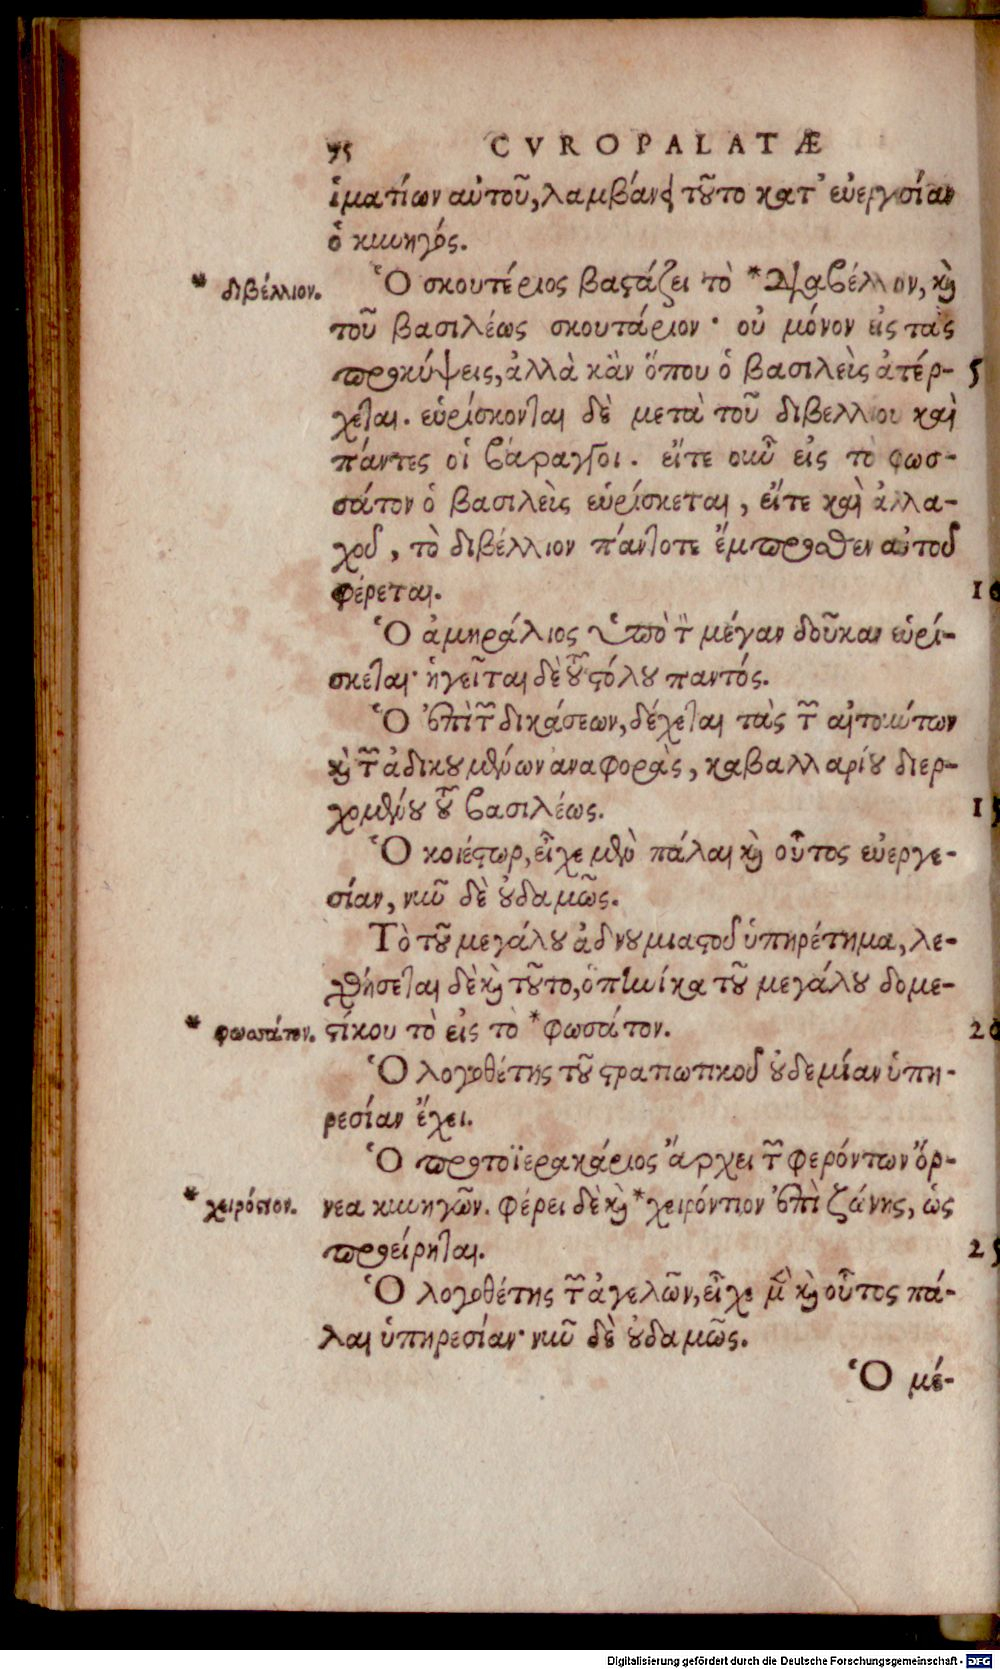 CVROPALATÆ
ἱματίων αὐτοῦ, λαμβάνει τοῦτο κατ' εὐεργεσίαν
ὁ κυνηγός.
* διβέλλιον.
Ὁ σκουτέριος βαστάζει τὸ * διαβέλλιον, καὶ
τοῦ βασιλέως σκουτάριον· οὐ μόνον εἰς τὰς
προκύψεις, ἀλλὰ κἂν ὅπου ὁ βασιλεὺς ἀπέρ- 5
χεται. εὑρίσκονται δὲ μετὰ τοῦ διβελλίου καὶ
πάντες οἱ βάραγγοι. εἴτε οὖν εἰς τὸ φωσ-
σάτον ὁ βασιλεὺς εὑρίσκεται, εἴτε καὶ ἀλλα-
χοῦ, τὸ διβέλλιον πάντοτε ἔμπροσθεν αὐτοῦ
φέρεται. 10
Ὁ ἀμηράλιος ὑπὸ τὸν μέγαν δοῦκαν εὑρί-
σκεται· ἡγεῖται δὲ τοῦ στόλου παντός.
Ὁ ἐπὶ τῶν δικάσεων, δέχεται τὰς τῶν αἰτούντων
καὶ τῶν ἀδικουμένων ἀναφορὰς, καβαλλαρίου διερ-
χομένου τοῦ βασιλέως. 15
Ὁ κοιέστωρ, εἶχε μὲν πάλαι καὶ οὗτος εὐεργε-
σίαν, νῦν δὲ οὐδαμῶς.
Τὸ τοῦ μεγάλου ἀδνουμιαστοῦ ὑπηρέτημα, λε-
χθήσεται δὲ καὶ τοῦτο, ὁπηνίκα τοῦ μεγάλου δομε-
* φωσσάτον.
στίκου τὸ εἰς τὸ * φωσάτον. 20
Ὁ λογοθέτης τοῦ στρατιωτικοῦ οὐδεμίαν ὑπη-
ρεσίαν ἔχει.
Ὁ πρωτοϊερακάριος ἄρχει τῶν φερόντων ὄρ-
* χειρόστιον.
νεα κυνηγῶν. φέρει δὲ καὶ * χειρόντιον ἐπὶ ζώνης, ὡς
προείρηται. 25
Ὁ λογοθέτης τῶν ἀγελῶν, εἶχε μὲν καὶ οὗτος πά-
λαι ὑπηρεσίαν· νῦν δὲ οὐδαμῶς.
Ὁ μέ-
Digitalisierung gefördert durch die Deutsche Forschungsgemeinschaft - DFG